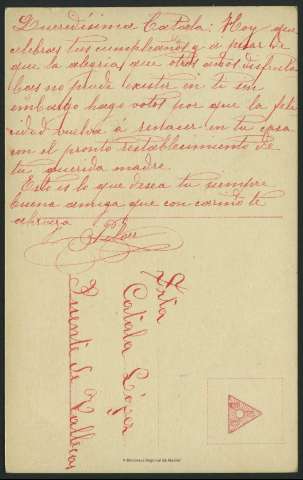 Queridísima Catala: Hoy que
celebras tus cumpleaños y a pesar de
que la alegría que otros años disfruta
bas no puede existir en ti sin
embargo hago votos por que la feli
cidad vuelva á renacer en tu casa
con el pronto restablecimiento de
tu querida madre.
Esto es lo que desea tu siempre
buena amiga que con cariño te
abraza
Srta
Catala López
Puente de Vallecas
© Biblioteca Regional de Madrid